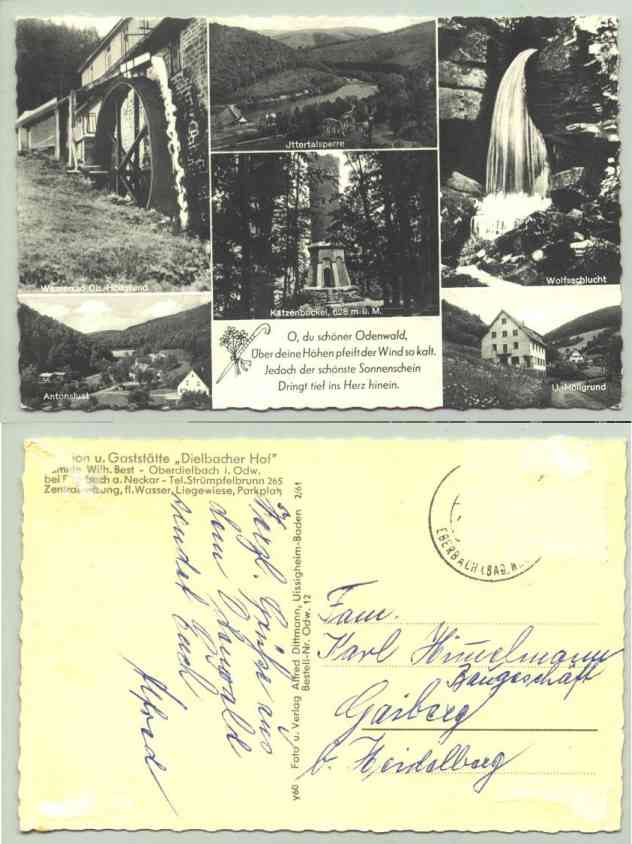 Jttertalsperre
Wasserrad Ob.-Höllgrund
Katzenbuckel, 628 m ü. M.
Wolfsschlucht
Antonslust
O, du schöner Odenwald,
Über deine Höhen pfeift der Wind so kalt.
Jedoch der schönste Sonnenschein
Dringt tief ins Herz hinein.
U.-Höllgrund
ion u. Gaststätte „Dielbacher Hof"
Wilh. Best - Oberdielbach i. Odw.
bei bach a. Neckar - Tel. Strümpfelbrunn 265
Zentralheizung, fl. Wasser, Liegewiese, Parkplatz
Herzl. Grüße aus
dem Odenwald
sendet Euch
Alfred
y60 Foto u. Verlag Alfred Dittmann, Uissigheim-Baden 2/61
Bestell-Nr. Odw. 12
EBERBACH (BAD.
Fam.
Karl Himmelmann
Baugeschäft
Gaiberg
b. Heidelberg